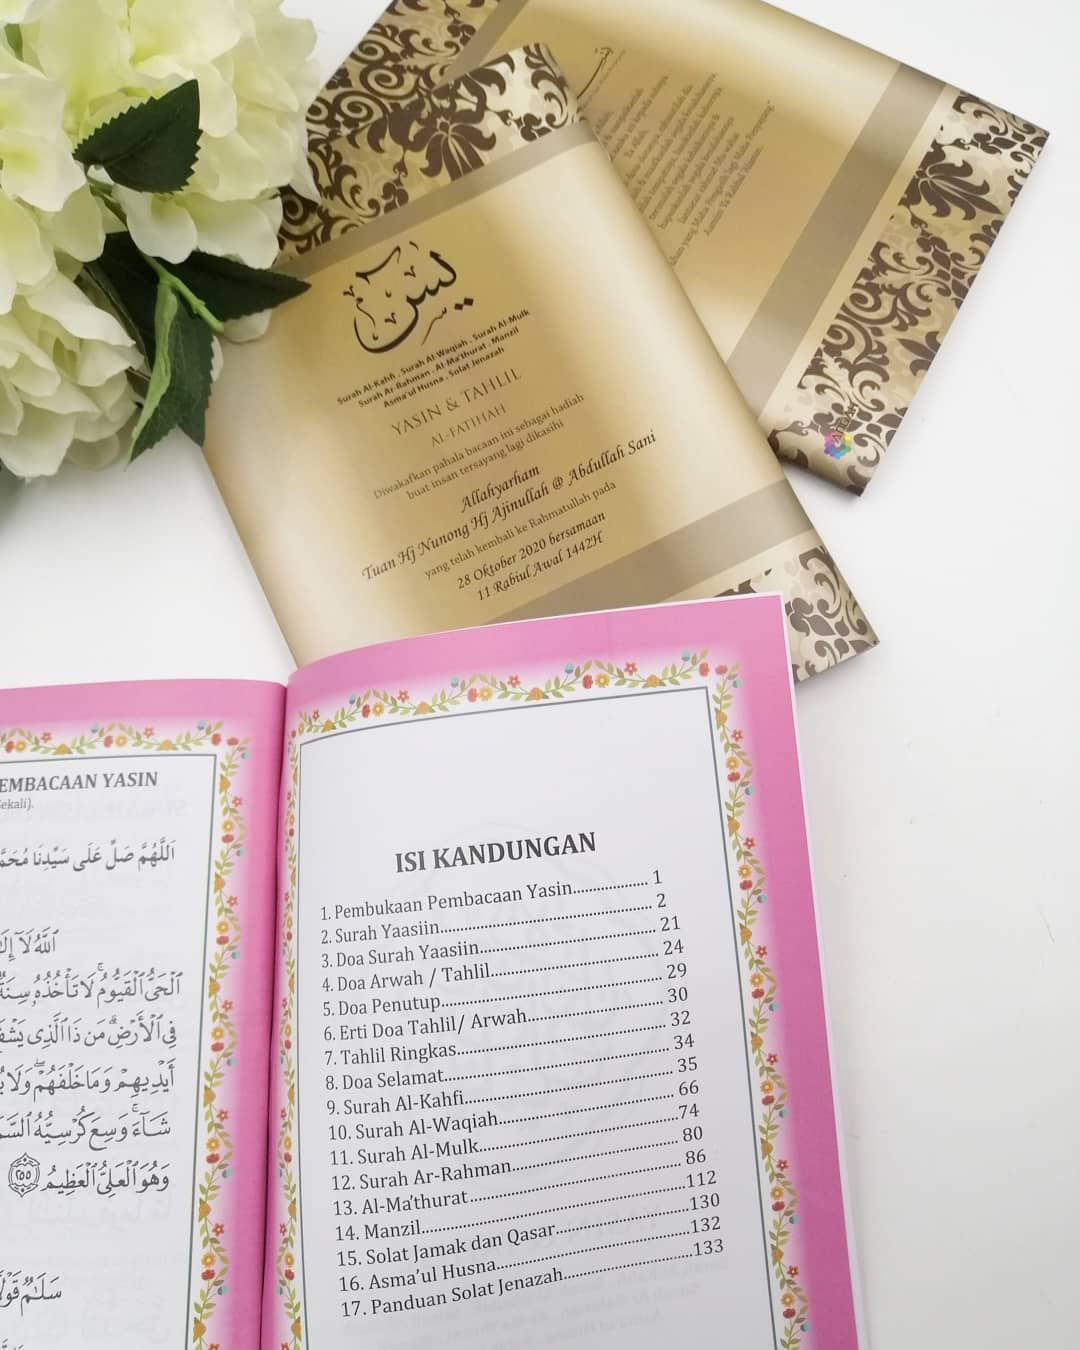 يس
Surah Al-Kahfi . Surah Al-Waqiah . Surah Al-Mulk
Surah Ar-Rahman . Al Ma'thurat . Manzil
Asma'ul Husna . Solat Jenazah
YASIN & TAHLIL
AL-FATIHAH
Diwakafkan pahala bacaan ini sebagai hadiah
buat insan tersayang lagi dikasihi
Allahyarham
Tuan Hj Nunong Hj Ajinullah @ Abdullah Sani
yang telah kembali ke Rahmatullah pada
28 Oktober 2020 bersamaan
11 Rabiul Awal 1442H
Ya Allah,
yang Maha Pengasih lagi Maha Penyayang"
EMBACAAN YASIN
ekali).
اَللّٰهُمَّ صَلِّ عَلَى سَيِّدِنَا
ٱللَّهُ لَآ
ٱلْحَىُّ ٱلْقَيُّومُ ۚ لَا تَأْخُذُهُۥ سِنَةٌ
فِى ٱلْأَرْضِ ۗ مَن ذَا ٱلَّذِى
أَيْدِيهِمْ وَمَا خَلْفَهُمْ ۖ وَلَا
شَآءَ ۚ وَسِعَ كُرْسِيُّهُ
وَهُوَ ٱلْعَلِىُّ ٱلْعَظِيمُ ٢٥٥
سَلَٰمٌ
ISI KANDUNGAN
1. Pembukaan Pembacaan Yasin................... 1
2. Surah Yaasiin..................................................... 2
3. Doa Surah Yaasiin............................................ 21
4. Doa Arwah / Tahlil.......................................... 24
5. Doa Penutup....................................................... 29
6. Erti Doa Tahlil/ Arwah.................................. 30
7. Tahlil Ringkas.................................................... 32
8. Doa Selamat........................................................ 34
9. Surah Al-Kahfi.................................................... 35
10. Surah Al-Waqiah............................................ 66
11. Surah Al-Mulk.................................................74
12. Surah Ar-Rahman.......................................... 80
13. Al-Ma'thurat..................................................... 86
14. Manzil.................................................................112
15. Solat Jamak dan Qasar................................130
16. Asma'ul Husna...............................................132
17. Panduan Solat Jenazah................................133